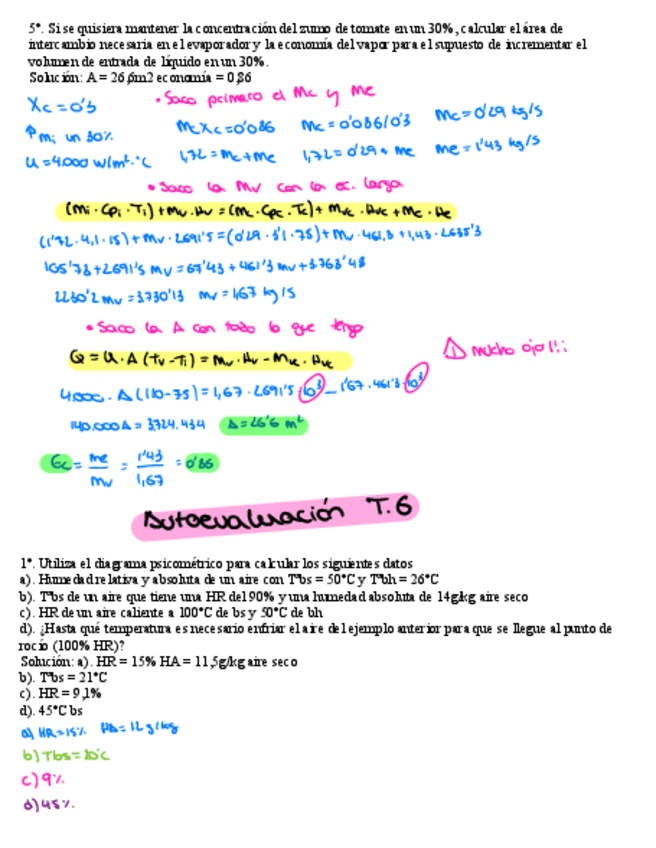 5ª. Si se quisiera mantener la concentración del zumo de tomate en un 30%, calcular el área de
intercambio necesaria en el evaporador y la economía del vapor para el supuesto de incrementar el
volumen de entrada de líquido en un 30%.
Solución: A = 26,6m2 economía = 0,86
Xc = 0'3
• Saco primero el Mc y Me
↑ mi un 30%
McXc = 0'086
Mc = 0'086/0'3
Mc = 0'29 kg/s
U = 4.000 W/m²·°C
1,72 = Mc + Me
1,72 = 0'29 + Me
Me = 1'43 kg/s
• Saco la Mv con la ec. larga
(Mi · Cpi · Ti) + Mv · Hv = (Mc · Cpc · Tc) + Mvc · Hvc + Me · He
(1'72 · 4,1 · 15) + Mv · 2691'5 = (0'29 · 3'1 · 75) + Mv · 461,3 + 1,43 · 2635'3
105'78 + 2691'5 Mv = 67'43 + 461'3 Mv + 3.768'48
2230'2 Mv = 3730'13 Mv = 1,67 kg/s
• Saco la A con todo lo que tengo
Q = U · A (Tv - Ti) = Mv · Hv - Mvc · Hvc
⚠ mucho ojo!!!
4.000 · A (110 - 75) = 1,67 · 2691'5 · 10³ - 1'67 · 461'3 · 10³
140.000 A = 3.724.434 A = 26'6 m²
Ec = Me/Mv = 1'43/1,67 = 0'86
Autoevaluación T.6
1ª. Utiliza el diagrama psicométrico para calcular los siguientes datos
a). Humedad relativa y absoluta de un aire con Tªbs = 50°C y Tªbh = 26°C
b). Tªbs de un aire que tiene una HR del 90% y una humedad absoluta de 14g/kg aire seco
c). HR de un aire caliente a 100°C de bs y 50°C de bh
d). ¿Hasta qué temperatura es necesario enfriar el aire del ejemplo anterior para que se llegue al punto de
rocío (100% HR)?
Solución: a). HR = 15% HA = 11,5g/kg aire seco
b). Tªbs = 21°C
c). HR = 9,1%
d). 45°C bs
a) HR = 15% HA = 12 g/kg
b) Tbs = °C
c) 9%
d) 45%.